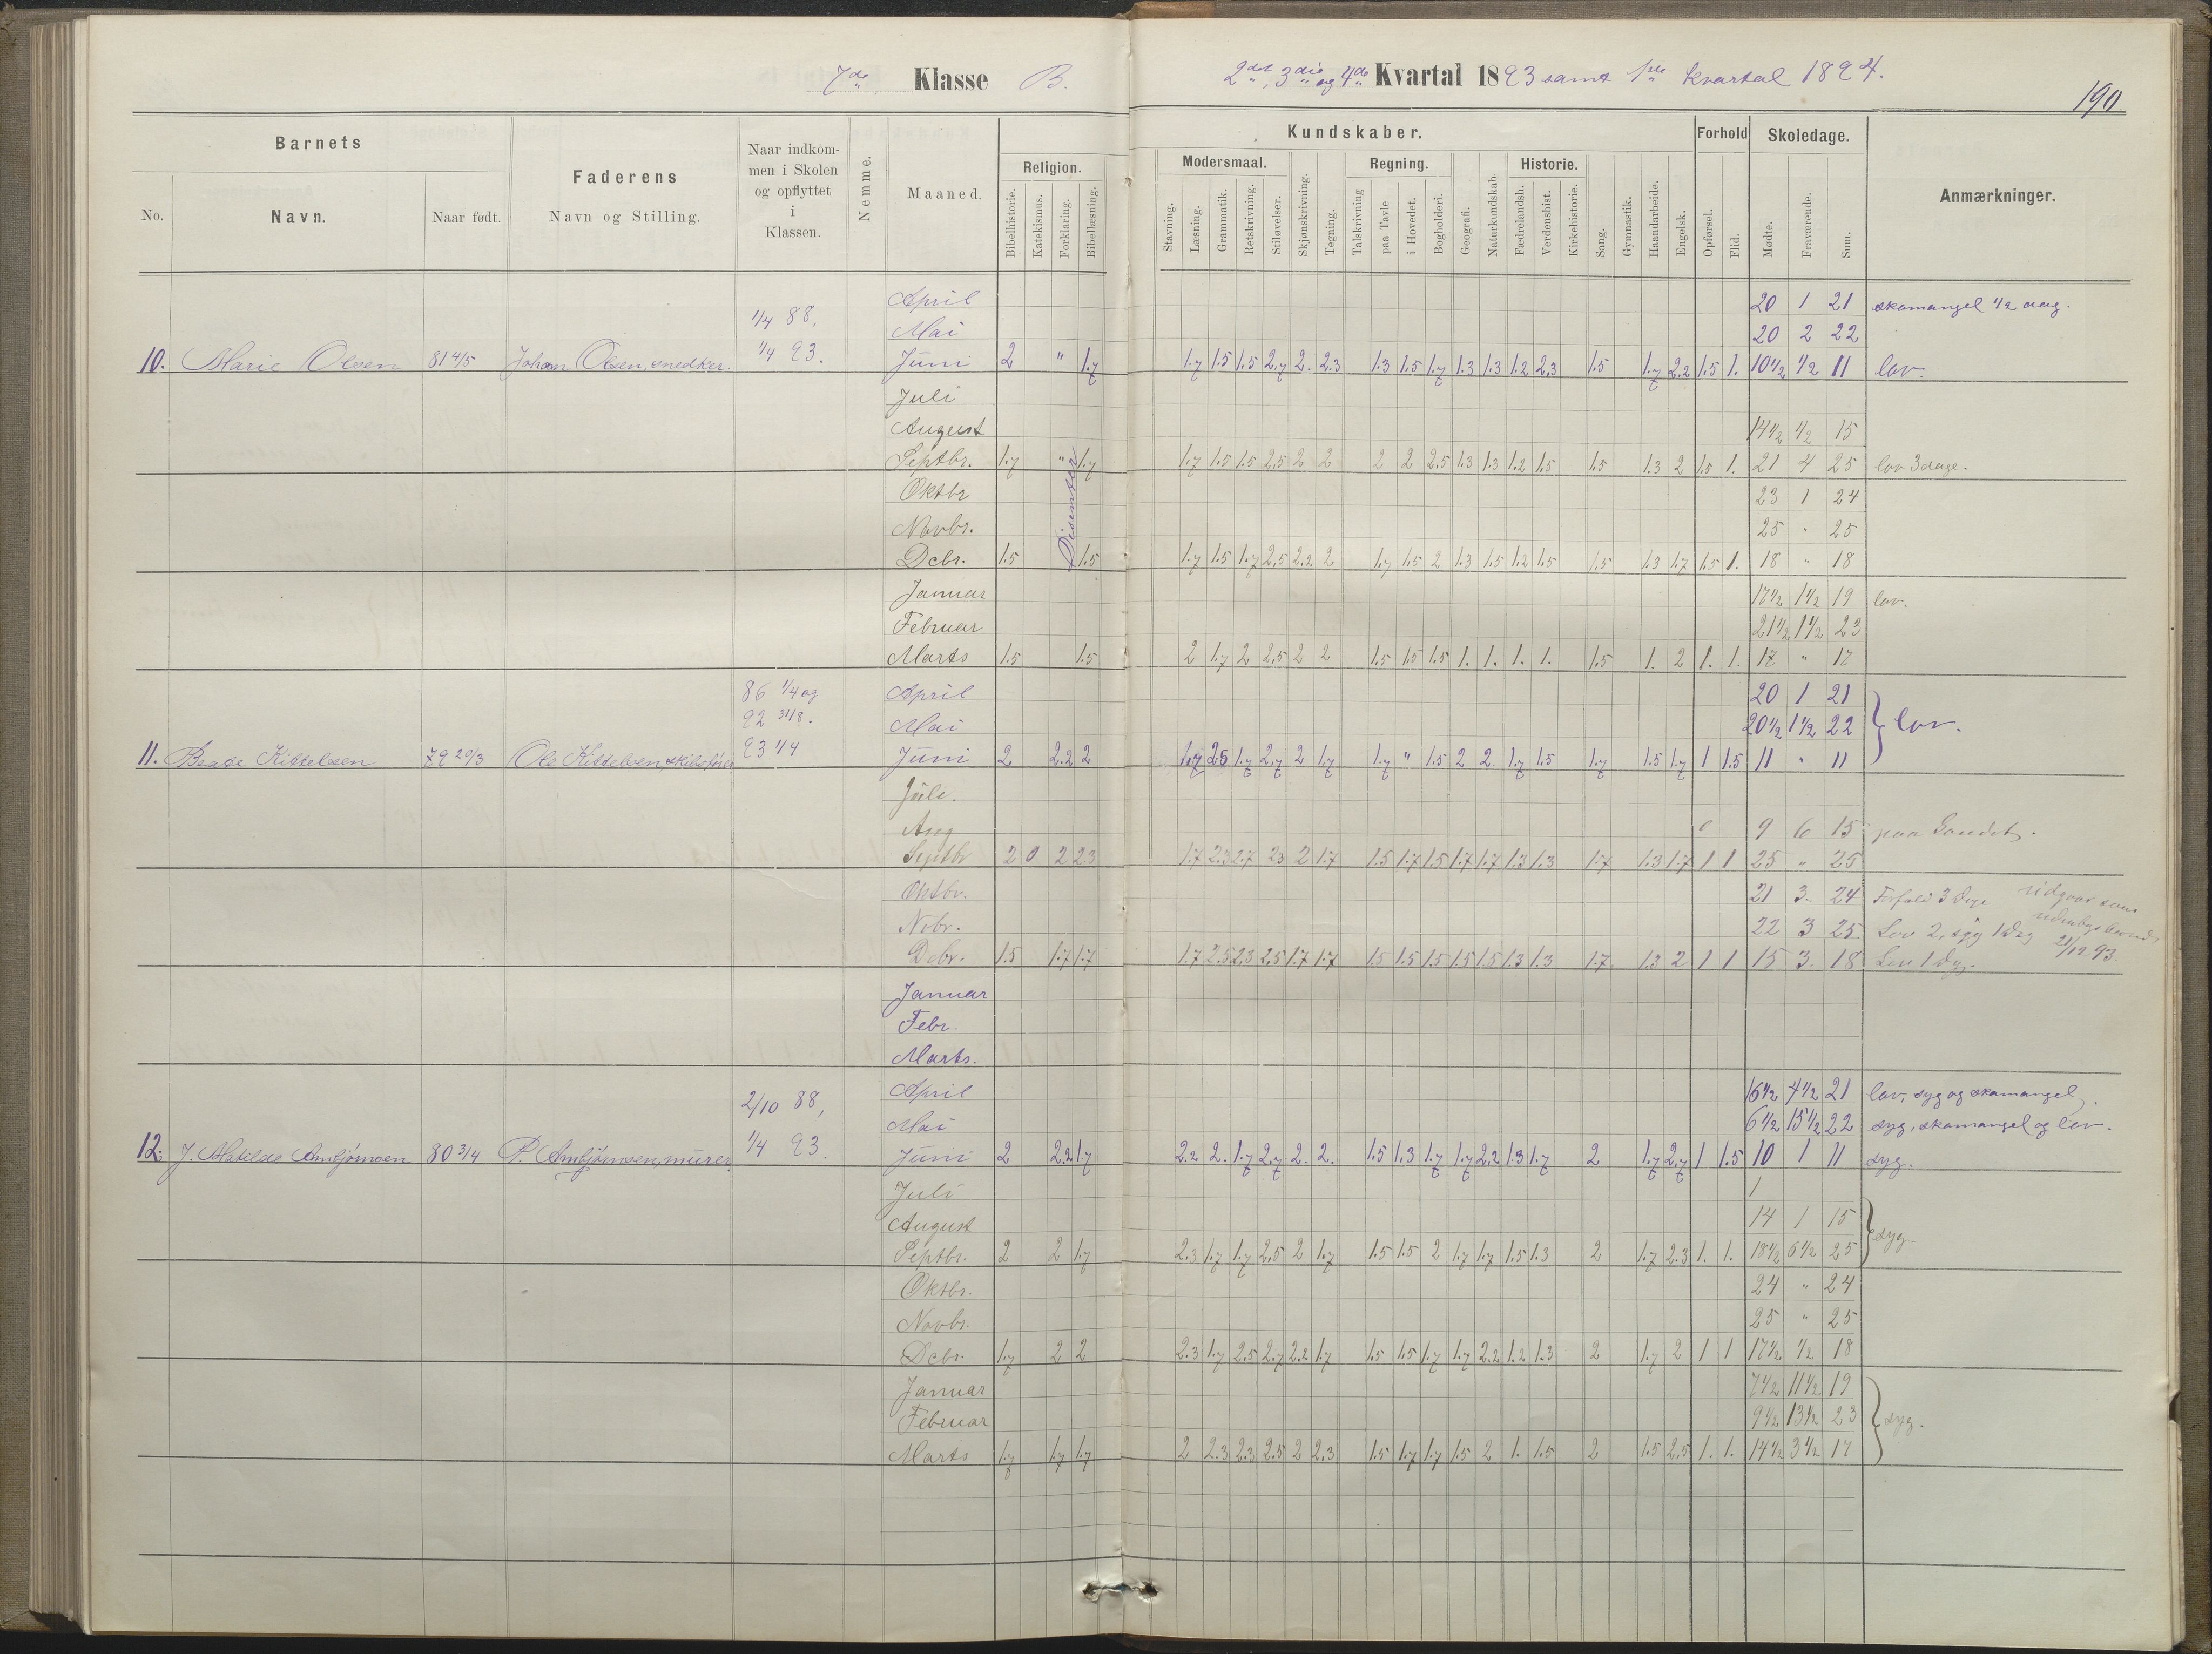 7de Klasse B.
2det, 3die og 4de Kvartal 1893 samt 1ste Kvartal 1894.
190
Barnets
No.
Navn.
Naar født.
Faderens
Navn og Stilling.
Naar indkom-
men i Skolen
og opflyttet
i
Klassen.
Nemme.
Maaned.
Religion.
Bibelhistorie.
Katekismus.
Forklaring.
Bibellæsning.
Kundskaber.
Modersmaal.
Stavning.
Læsning.
Grammatik.
Retskrivning.
Stiløvelser.
Skjønskrivning.
Tegning.
Regning.
Talskrivning
paa Tavle
i Hovedet.
Bogholderi.
Geografi.
Naturkundskab
Historie.
Fædrelandsh.
Verdenshist.
Kirkehistorie.
Sang.
Gymnastik.
Haandarbeide.
Engelsk.
Forhold
Opførsel.
Flid.
Skoledage.
Mødte.
Fraværende.
Sum.
Anmærkninger.
April 20 1 21 skomangel 1/2 dag.
1/4 88, Mai 20 2 22
10. Marie Olsen 81 4/5 Johan Olsen, snedker. 1/4 93. Juni 2 " 1.7 1.7 1.5 1.5 2.7 2. 2.3 1.3 1.5 1.7 1.3 1.3 1.2 2.3 1.5 1.7 2.2 1.5 1. 10 1/2 1/2 11 lov.
Juli
August 14 1/2 1/2 15
Septbr. 1.7 " 1.7 1.7 1.5 1.5 2.5 2 2 2 2 2.5 1.3 1.3 1.2 1.5 1.5 1.3 2 1.5 1. 21 4 25 lov 3 dage.
Dissenter
Oktbr 23 1 24
Novbr. 25 " 25
Dcbr. 1.5 1.5 1.7 1.5 1.7 2.5 2.2 2 1.7 1.5 2 1.3 1.5 1.2 1.5 1.5 1.3 1.7 1.5 1. 18 " 18
Januar 17 1/2 1 1/2 19 lov.
Februar 21 1/2 1 1/2 23
Marts 1.5 1.5 2 1.7 2 2.5 2 2 1.5 1.5 1.5 1. 1. 1. 1. 1.5 1. 2 1. 1. 17 " 17
86 1/4 og April 20 1 21
92 31/8. Mai 20 1/2 1 1/2 22 lov.
11. Beate Kittelsen 79 20/3 Ole Kittelsen, skibsfører 93 1/4 Juni 2 2.2 2 1.7 2.5 1.7 2.7 2 1.7 1.7 " 1.5 2 2. 1.7 1.5 1.7 1.5 1.7 1 1.5 11 " 11
Juli.
Aug 9 6 15 paa Landet.
Septbr 2 0 2 2.3 1.7 2.3 2.7 2.3 2 1.7 1.5 1.7 1.5 1.7 1.7 1.3 1.3 1.7 1.3 1.7 1 1 25 " 25
Oktbr. 21 3. 24 Forfald 3 Dage
Nobr. 22 3 25 Lov 2, syg 1 Dag
Debr. 1.5 1.7 1.7 1.7 2.5 2.3 2.5 1.7 1.7 1.5 1.5 1.5 1.5 1.5 1.3 1.3 1.7 1.3 2 1 1 15 3. 18 Lov 1 Dag. 21/12 93.
Januar
Febr.
Marts.
April 16 1/2 4 1/2 21 lov, syg og skomangel.
2/10 88, Mai 6 1/2 15 1/2 22 syg, skomangel og lov.
12. J. Matilde Arnbjørnsen 80 3/4 P. Arnbjørnsen, murer 1/4 93. Juni 2 2.2 1.7 2.2 2. 1.7 2.7 2. 2. 1.5 1.3 1.7 1.7 2.2 1.3 1.7 2 1.7 2.7 1 1.5 10 1 11 syg.
Juli
August 14 1 15
Septbr. 2 2 1.7 2.3 1.7 1.7 2.5 2 1.7 1.5 1.5 2 1.7 1.7 1.5 1.3 2 1.7 2.3 1. 1. 18 1/2 6 1/2 25 syg.
Oktbr. 24 " 24
Novbr. 25 " 25
Dcbr. 1.7 2 2 2.3 1.7 2.5 2.7 2.2 1.7 1.5 1.5 1.7 1.7 2.2 1.2 1.3 2 1.7 2 1 1 17 1/2 1/2 18
Januar 7 1/2 11 1/2 19
Februar 9 1/2 13 1/2 23 syg.
Marts 1.7 1.7 1.7 2 2.3 2.3 2.5 2 2.3 1.5 1.7 1.7 1.5 2 1. 1.5 2 1.5 2.5 1. 1. 14 1/2 3 1/2 17